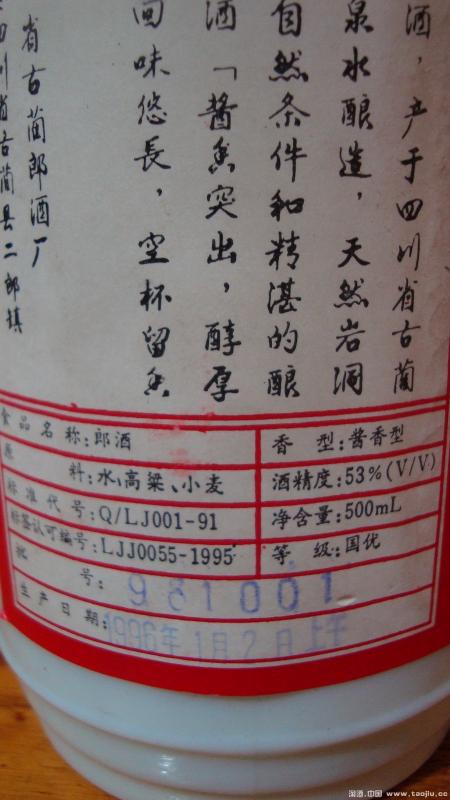 酒，产于四川省古蔺
泉水酿造，天然岩洞
自然条件和精湛的酿
酒「酱香突出，醇厚
回味悠長，空杯留香
省古蔺郎酒厂
四川省古蔺县二郎镇
食品名称:郎酒
香型:酱香型
原料:水、高粱、小麦
酒精度:53%(V/V)
标准代号:Q/LJ001-91
净含量:500mL
标签认可编号:LJJ0055-1995
等级:国优
批号:
生产日期:1996年1月2日上午
www.taojiu.cc